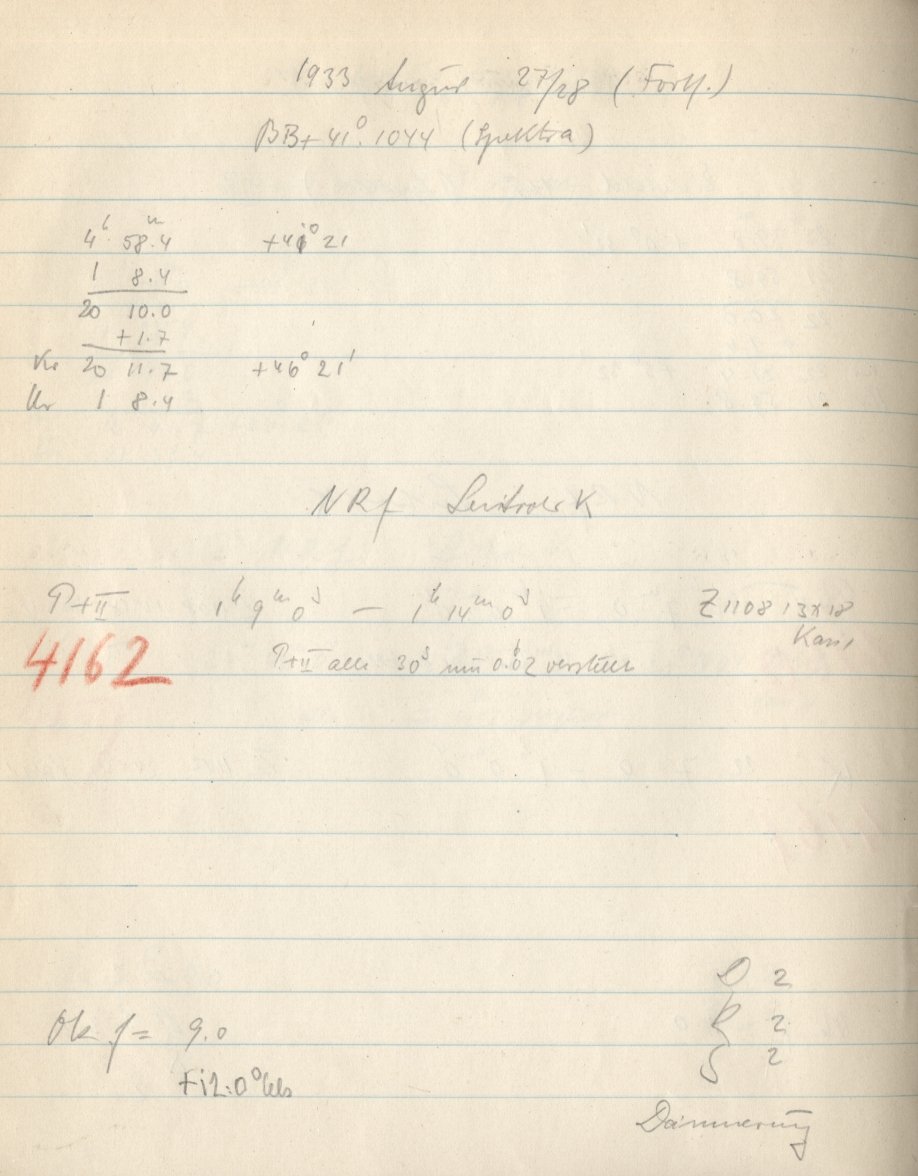 1933 August 27/28 (Forts.)
BD+41°.1044 (Spektra)
4h 58.4m +41° 21
1 8.4
20 10.0
+1.7
20 11.7 +46° 21'
Ur 1 8.4
NRf
P+II 1h 9m 0s — 1h 14m 0s Z1108 13x18
4162
P+II alle 30s um 0.02 verstellt
Ok f= 9.0
+12.0° Cels
D 2
R 2
S 2
Dämmerung